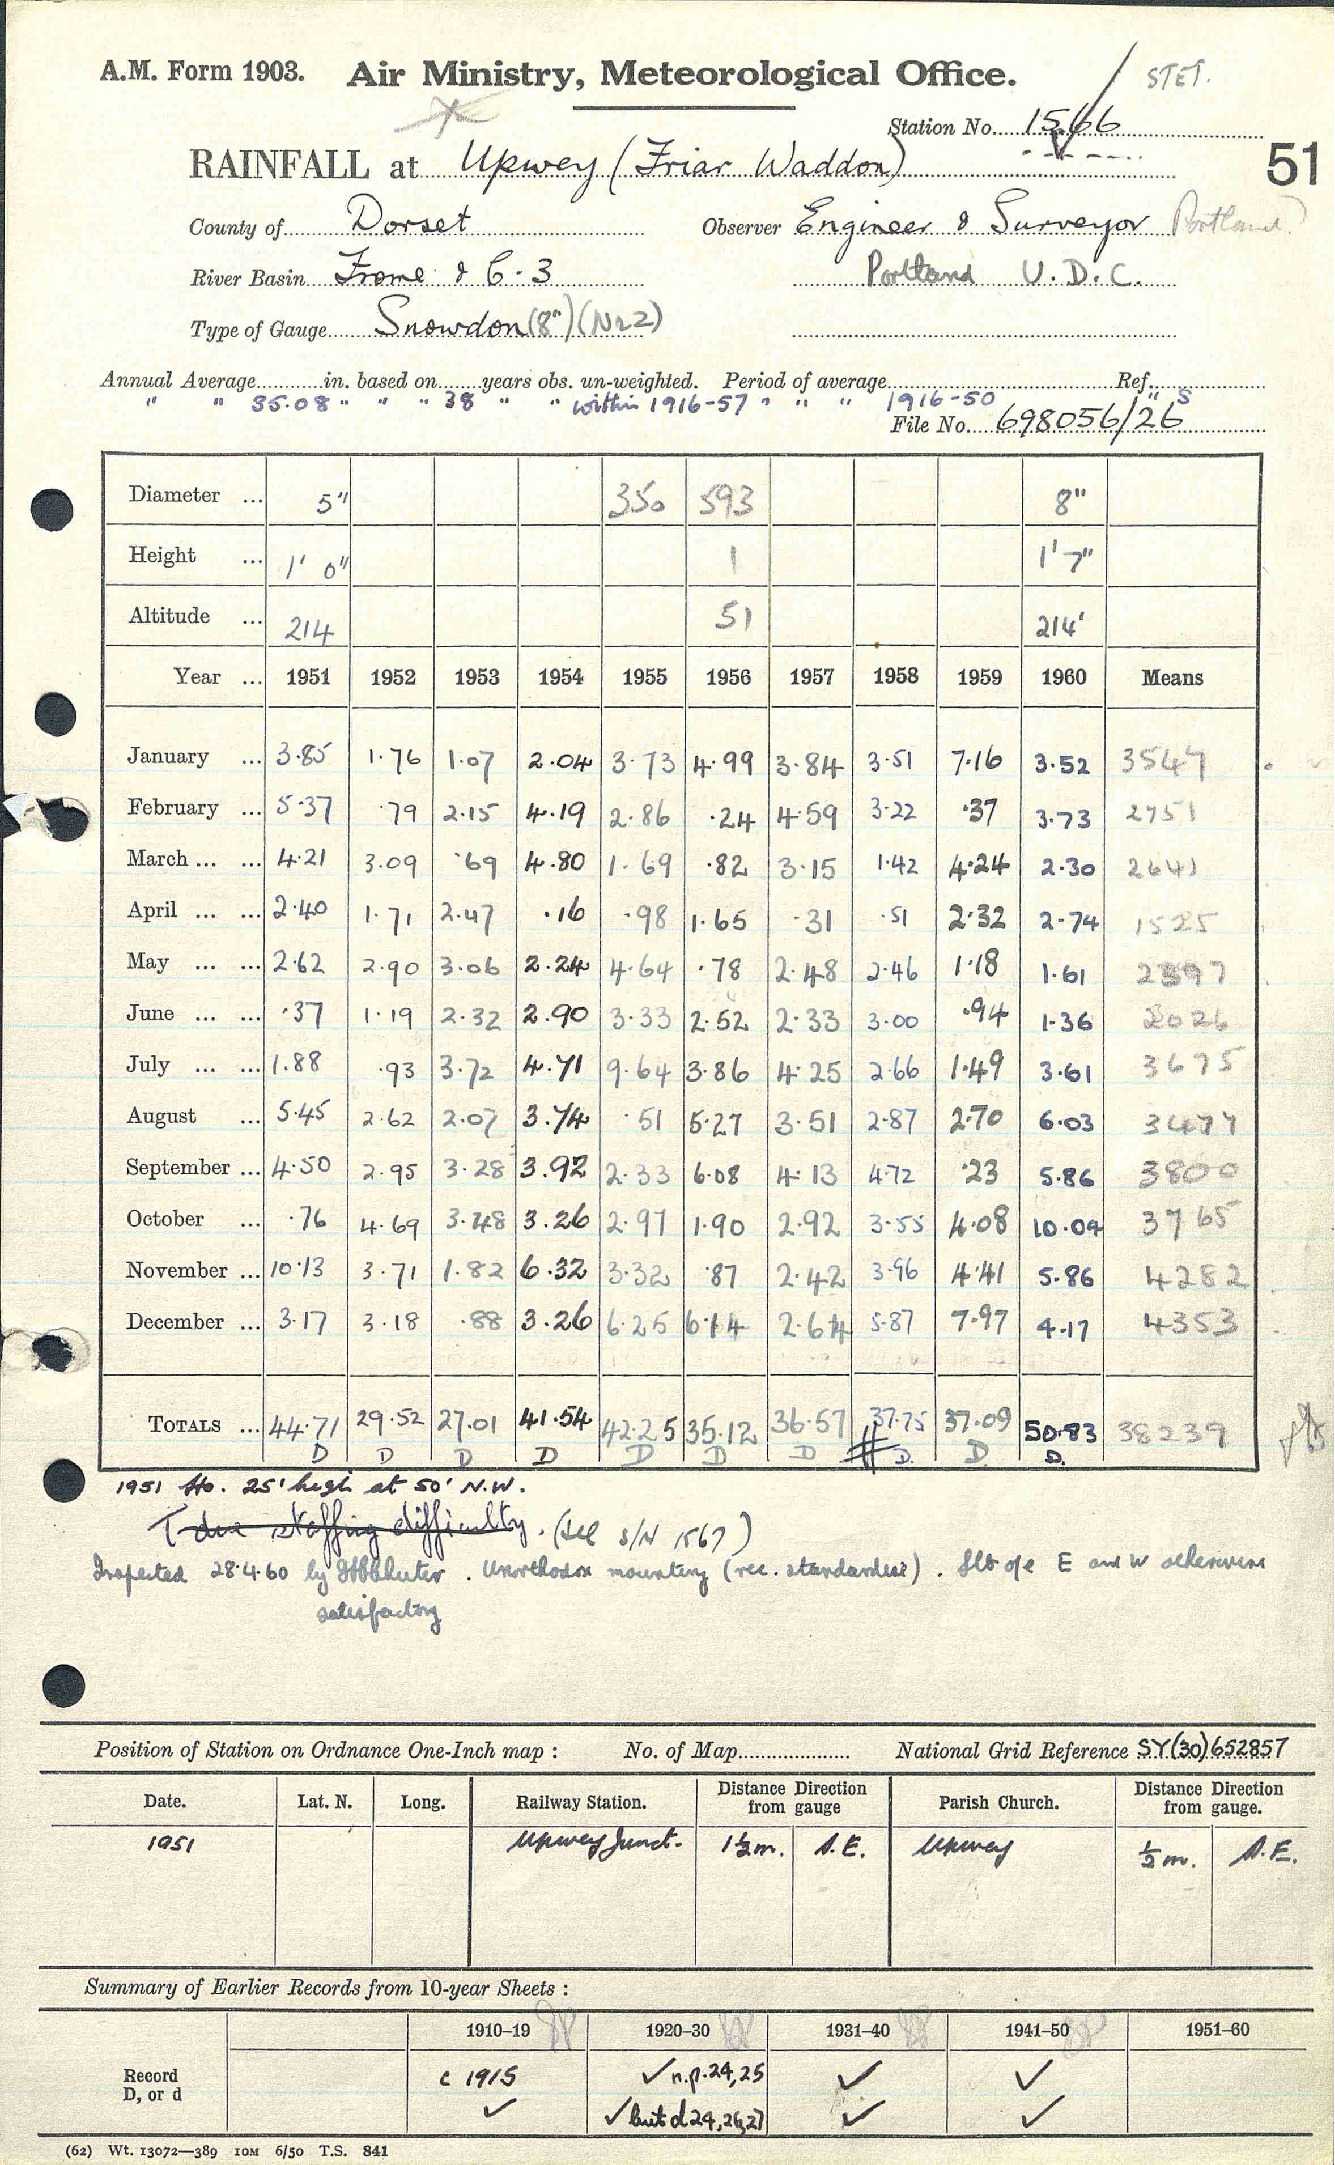 A.M. Form 1903. Air Ministry, Meteorological Office. STET.
Station No. 1566
51
RAINFALL at Upwey (Friar Waddon)
County of Dorset Observer Engineer & Surveyor Portland
River Basin Frome & C.3 Portland U.D.C.
Type of Gauge Snowdon (8") (Nr2)
Annual Average in. based on years obs. un-weighted. Period of average Ref.
" " 35.08 " " " 38 " " within 1916-57 " " " 1916-50 " S
File No. 698056/26
Diameter ... 5" 350 593 8"
Height ... 1' 0" 1 1' 7"
Altitude ... 214 51 214'
Year ... 1951 1952 1953 1954 1955 1956 1957 1958 1959 1960 Means
January ... 3.85 1.76 1.07 2.04 3.73 4.99 3.84 3.51 7.16 3.52 3547
February ... 5.37 .79 2.15 4.19 2.86 .24 4.59 3.22 .37 3.73 2751
March ... ... 4.21 3.09 .69 4.80 1.69 .82 3.15 1.42 4.24 2.30 2641
April ... ... 2.40 1.71 2.47 .16 .98 1.65 .31 .51 2.32 2.74 1525
May ... ... 2.62 2.90 3.06 2.24 4.64 .78 2.48 2.46 1.18 1.61 2397
June ... ... .37 1.19 2.32 2.90 3.33 2.52 2.33 3.00 .94 1.36 2026
July ... ... 1.88 .93 3.72 4.71 9.64 3.86 4.25 2.66 1.49 3.61 3675
August ... 5.45 2.62 2.07 3.74 .51 5.27 3.51 2.87 2.70 6.03 3477
September ... 4.50 2.95 3.28 3.92 2.33 6.08 4.13 4.72 .23 5.86 3800
October ... .76 4.69 3.48 3.26 2.97 1.90 2.92 3.55 4.08 10.04 3765
November ... 10.13 3.71 1.82 6.32 3.32 .87 2.42 3.96 4.41 5.86 4282
December ... 3.17 3.18 .88 3.26 6.25 6.14 2.64 5.87 7.97 4.17 4353
TOTALS ... 44.71 29.52 27.01 41.54 42.25 35.12 36.57 37.75 37.09 50.83 38239
D D D D D D D D. D. D.
1951 Ho. 25' high at 50' N.W.
T due staffing difficulty. (see S/N 1567)
Inspected 28.4.60 by . Unorthodox mounting (rec. standardise). Slt o/e E and W otherwise
satisfactory
Position of Station on Ordnance One-Inch map : No. of Map National Grid Reference SY(30)652857
Date. Lat. N. Long. Railway Station. Distance Direction from gauge Parish Church. Distance Direction from gauge.
1951 Upwey Junct. 1½m. S.E. Upwey ½m. S.E.
Summary of Earlier Records from 10-year Sheets :
1910–19 1920–30 1931–40 1941–50 1951–60
Record c 1915 ✓ n.p. 24, 25 ✓ ✓
D, or d ✓ ✓ but d 24, 26, 27 ✓ ✓
(62) Wt. 13072—389 10M 6/50 T.S. 841